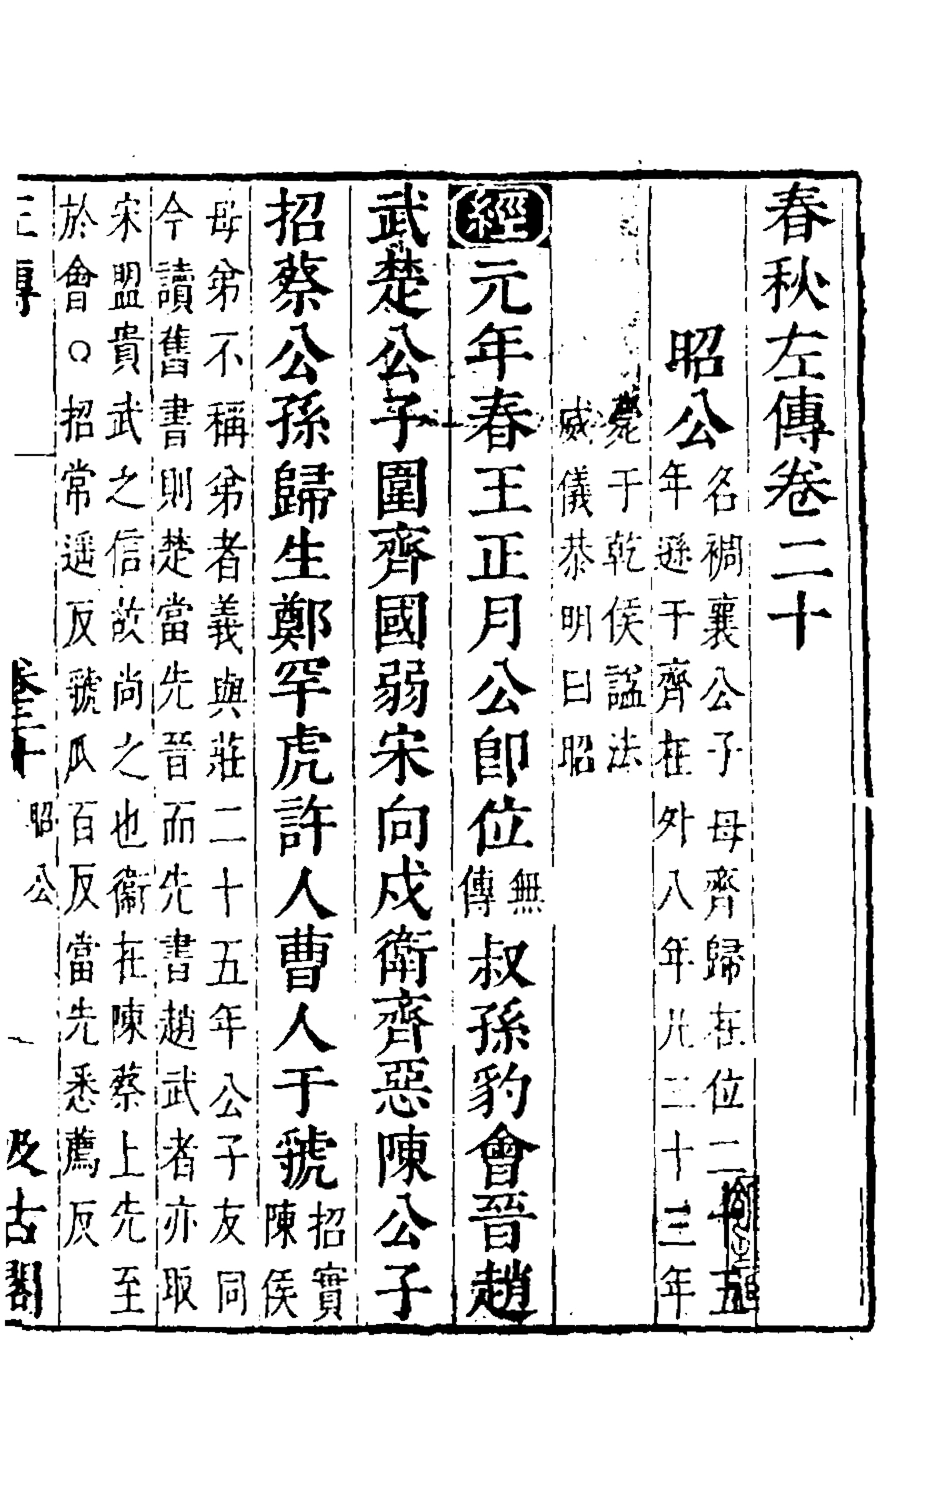 春秋左傳卷二十
昭公
名裯襄公子母齊歸在位二十五
年遜于齊在外八年凡三十三年
薨于乾侯謚法
威儀恭明曰昭
經元年春王正月公卽位
無
傳
叔孫豹會晉趙
武楚公子圍齊國弱宋向戌衛齊惡陳公子
招蔡公孫歸生鄭罕虎許人曹人于虢
招實
陳侯
母弟不稱弟者義與莊二十五年公子友同
今讀舊書則楚當先晉而先書趙武者亦取
宋盟貴武之信故尚之也衞在陳蔡上先至
於會○招常遥反虢瓜百反當先悉薦反
卷二十
昭公
一
汲古閣